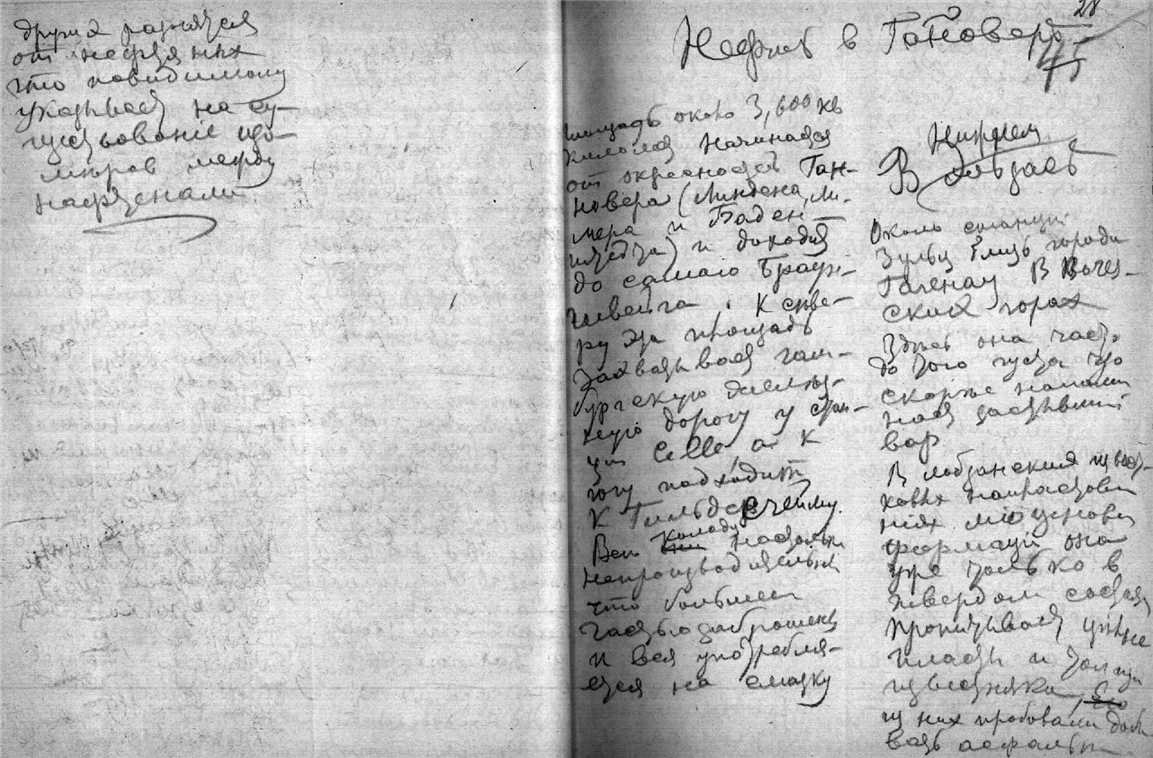 другія разнятся
от нафтяных
что повидимому
указывает на су-
ществованіе изо-
меров между
нафтенами.
28
45
Нефть в Ганновере
площадь около 3,600 кв
километ начинается
от окресностей Ган-
новера (Линдена, Ли-
мера и Баден
) и доходит
до самаго Браун-
швейга. К севе-
ру эта площадь
захватывает гам-
бургскую желез-
ную дорогу у стан-
ции Celle, а к
югу подходит
к Гильдесгейму.
Все колодцы настолько
непроизводительны
что большей
частью заброшены
и вся употребля-
ется на смазку
Нижнем
В Эльзасе
Около станции
Зульц близь города
Гагенау в Воге-
ских горах
Здесь она часто
до того густа что
скорее напоми
нает застывший
вар
В лобзанских извест-
ковых напластова
ниях миоценовой
формации она
уже только в
твердом состоян
пропитывает целые
пласты и толщи
известняка,
из них пробовали добы
вать асфальт.